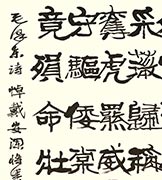 采薇師稱
奪虎羆威
守驅倭棠
竟殞命壯
毛澤东诗悼戴安瀾將軍